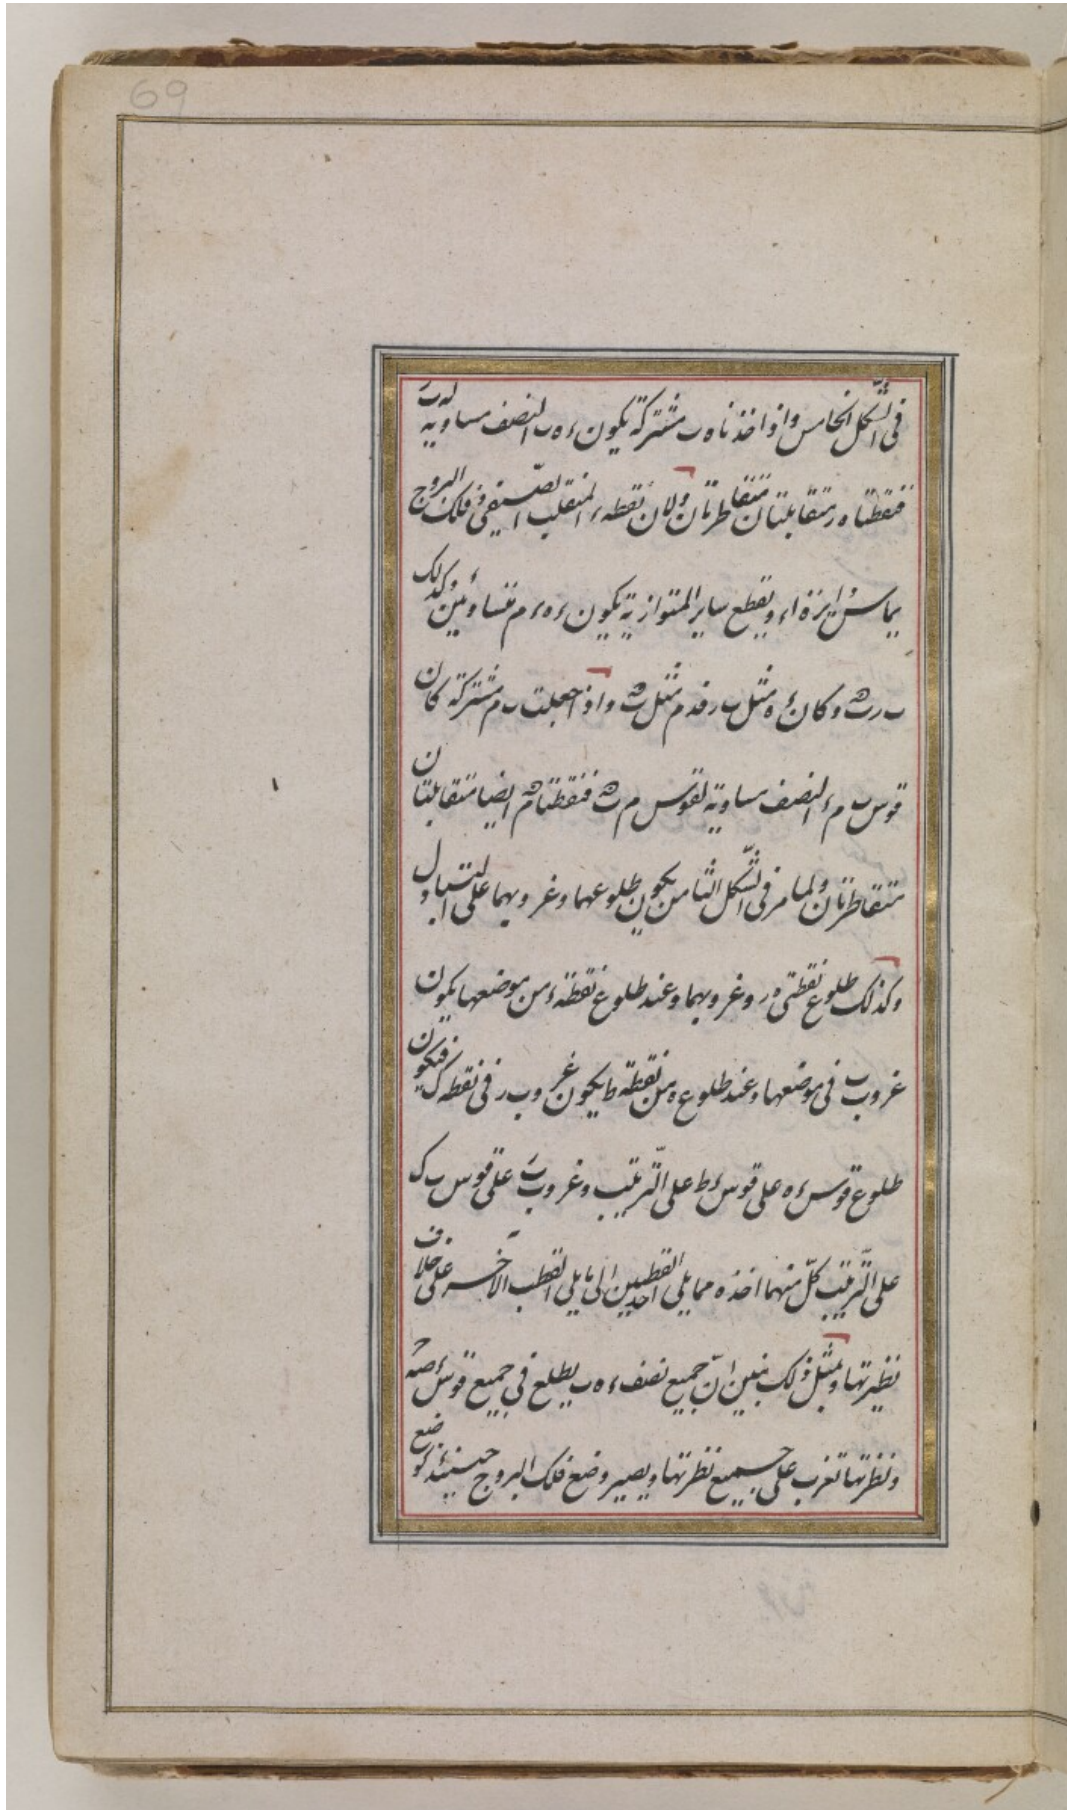 69
فى الشّكل الخامس واذا اخذنا ه ب مشتركة يكون ء ه ب النصف مساوية له ب
فنقطتا ه ر متقابلتان متقاطرتان ولان نقطه ء المنقلب الصّيفى فى فلك البروج
يماس دايرة ا ء ويقطع ساير المتوازية يكون ء ه ء م متساويين وكذلك
ب ر ث وكان ء ه مثل ب ر فد م مثل ب ث واذا جعلت ب م مشتركة كان
قوس ب م ء النصف مساوية لقوس م ث فنقطتا م ث ايضا متقابلتان
متقاطرتان ولما مر فى الشّكل الثامن يكون طلوعهما وغروبهما على التبادل
وكذلك طلوع نقطتى ه ر وغروبهما وعند طلوع نقطة ء من موضعها يكون
غروب ب فى موضعها وعند طلوع ه من نقطة ط يكون غروب ر فى نقطه ك فيكون
طلوع قوس ء ه على قوس ء ط على التّرتيب وغروب على قوس ب ك
على التّرتيب كلّ منهما اخذه مما يلى احد القطبين الى ما يلى القطب الآخر على خلاف
نظيرتها وبمثل ذلك نبين انّ جميع نصف ء ه ب يطلع فى جميع قوس
ونظرتها تغرب على جميع نظرتها ويصير وضع فلك البروج حينئذ كوضع